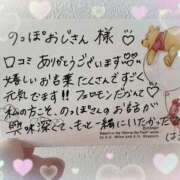 のっぽおじさん 様♡
口コミ ありがとうございます♡
嬉しいお言葉 たくさんですごく
元気でます!! フェロモンだなんて♡
私の方こそ、のっぽさんのお話が
興味深くて、もっと一緒にいたかった
は